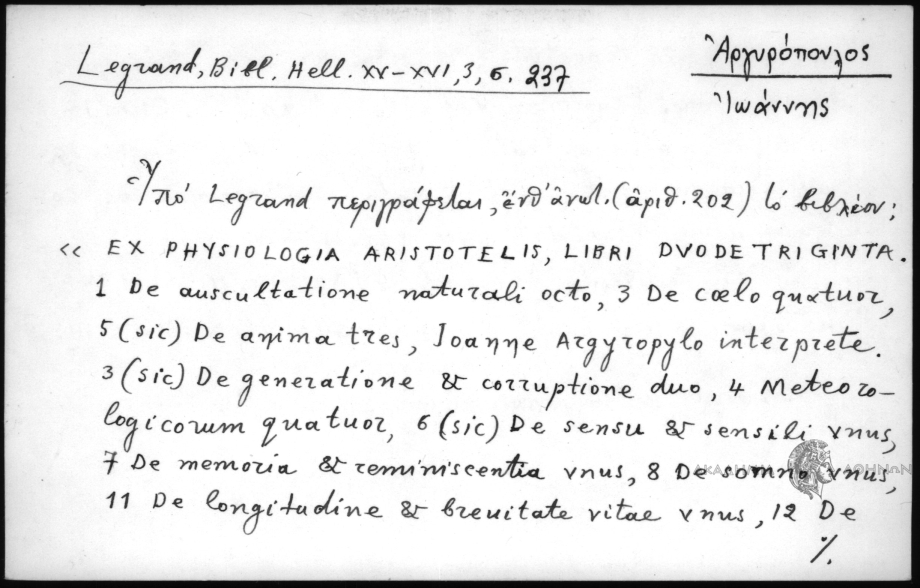 Legrand, Bibl. Hell. XV-XVI, 3, σ. 237
Ἀργυρόπουλος
Ἰωάννης
Ὑπό Legrand περιγράφεται, ἔνθ' ἀνωτ. (ἀριθ. 202) τό βιβλίον;
<< EX PHYSIOLOGIA ARISTOTELIS, LIBRI DVODETRIGINTA.
1 De auscultatione naturali octo, 3 De cœlo quatuor,
5 (sic) De anima tres, Joanne Argyropylo interprete.
3 (sic) De generatione & corruptione duo, 4 Meteoro-
logicorum quatuor, 6 (sic) De sensu & sensili vnus,
7 De memoria & reminiscentia vnus, 8 De somno vnus,
11 De longitudine & breuitate vitae vnus, 12 De
%.
ΑΚΑΔΗΜΙΑ ΑΘΗΝΩΝ